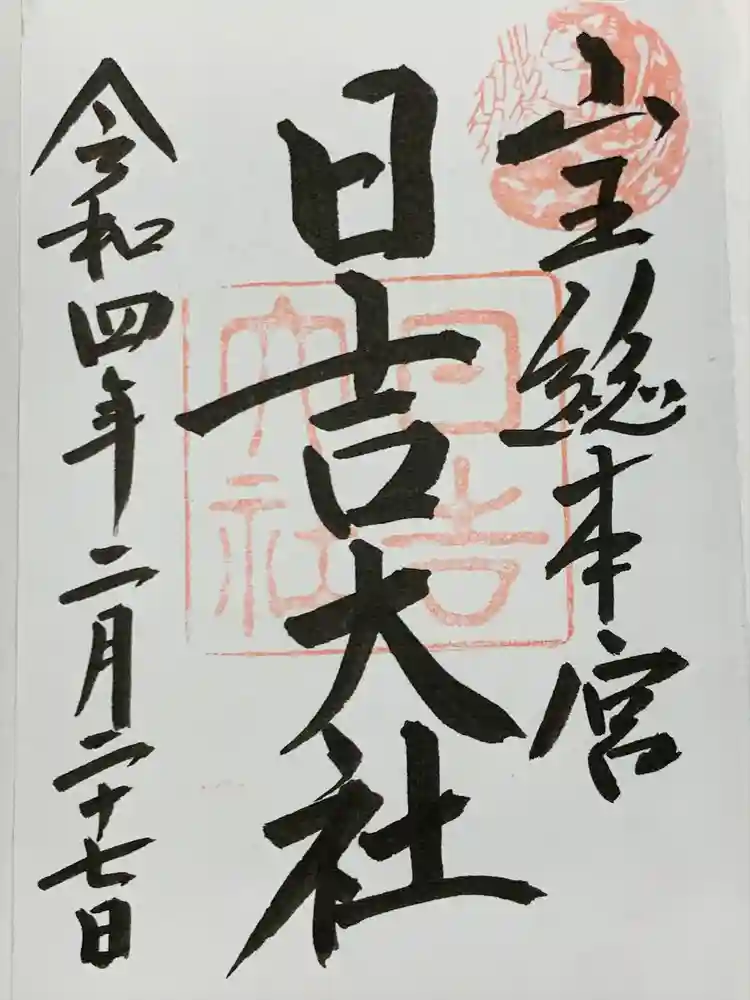 山王総本宮
日吉大社
令和四年二月二十七日
日吉
大社